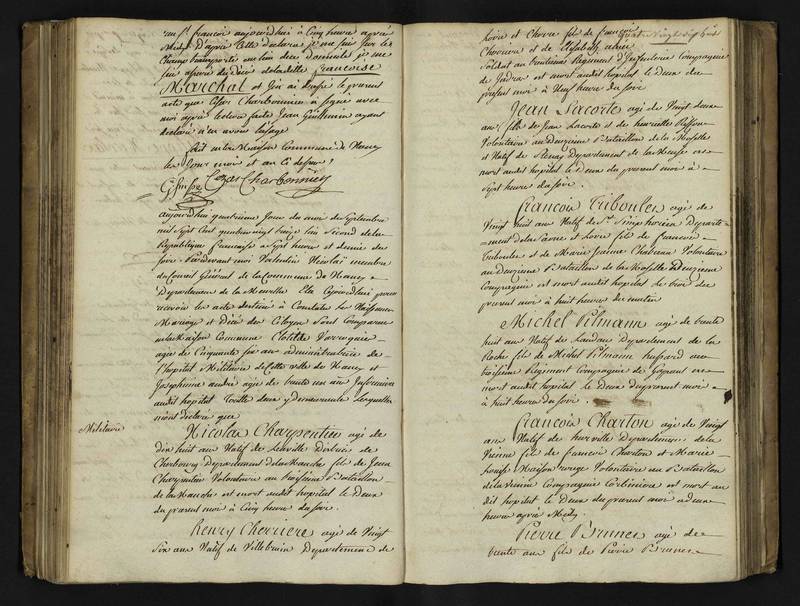 françois aujourdhui à Cinq heure après
midi D'après Cette déclaration je me suis sur les
Champ transporté au lieu de ce domicile je me
suis assuré du décès de ladite françoise
Marchal et j'en ai dressé le présent
acte que Cesar Charbonnier a signé avec
moi après lecture faite Jean Guillemin ayant
déclaré n'en avoir l'usage
fait en la Maison Commune de Nancy
les Jour mois et an Ci dessus
Cezar Charbonnier
aujourdhui quatrieme Jour du mois de Septembre
mil Sept Cent quatrevingt treize l'an Second de la
République française a Sept heure et demie du
soir Pardevant moi Valentin Nicolaï membre
du Conseil Général de la Commune de Nancy
Departement de la Meurthe Elu aujourdhui pour
recevoir les acte destiné à Constater les Naissance
Mariage et Décès des Citoyen Sont Comparue
en la Maison Commune Clotilde
agée de Cinquante six ans administratrice de
l'hopital Militaire de Cette ville de Nancy et
Josephine agée de trente un ans Infirmiere
audit hopital toutte deux y demeurante Lesquelles
m'ont déclaré que
Militaire
Nicolas Charpentier agé de
dix huit ans Natif de District de
Cherbourg Departement de la Manche fils de Jean
Charpentier Volontaire au troisième Bataillon
de la Manche est mort audit hopital le Deux
du présent mois à Cinq heure du soir.
henry Cherriere agé de Vingt
Six ans Natif de Villebruin Departement de
Loire et Chere fils de françois
Cherriere et de Elisabeth
Soldat au trentieme Regiment d'Infanterie Compagnie
de est mort audit hopital le Deux du
présent mois à Neuf heure du soir
Jean Lacorte agé de Vingt deux
ans fils de Jean Lacorte et de henriette
Volontaire au Deuxieme Bataillon de la Moselle
et Natif de Stenay Departement de la Meuse est
mort audit hopital le Deux du présent mois à
Sept heures du soir.
françois Triboulet agé de
Vingt huit ans Natif de St Simphorien Departe-
-ment de la et Loire fils de françois
Triboulet et de Marie Jeanne Chateau Volontaire
au Deuxieme Bataillon de la Moselle Deuxieme
Compagnie est mort audit hopital le trois du
présent mois à huit heures du matin
Michel Pilmann agé de trente
huit ans Natif de Landau Departement de la
Roche fils de Michel Pilmann hussard au
troisieme Regiment Compagnie de est
mort audit hopital le Deux du présent mois
à huit heures du soir.
françois Charton agé de Vingt
ans Natif de Departement de la
Vienne fils de françois Charton et Marie
Louise Maison rouge Volontaire au Bataillon
de la Vienne Compagnie est mort au
dit hopital le Deux du présent mois à deux
heures après Midy
Pierre Brunet agé de
trente ans fils de Pierre Brunet